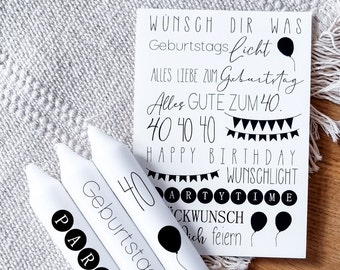 WÜNSCH DIR WAS
Geburtstags Licht
ALLES LIEBE ZUM Geburtstag
Alles GUTE ZUM 40.
40 40 40
HAPPY BIRTHDAY
WUNSCHLICHT
ARTYTIME
ÜCKWUNSCH
ich feiern
PAR
Geburtstags
40